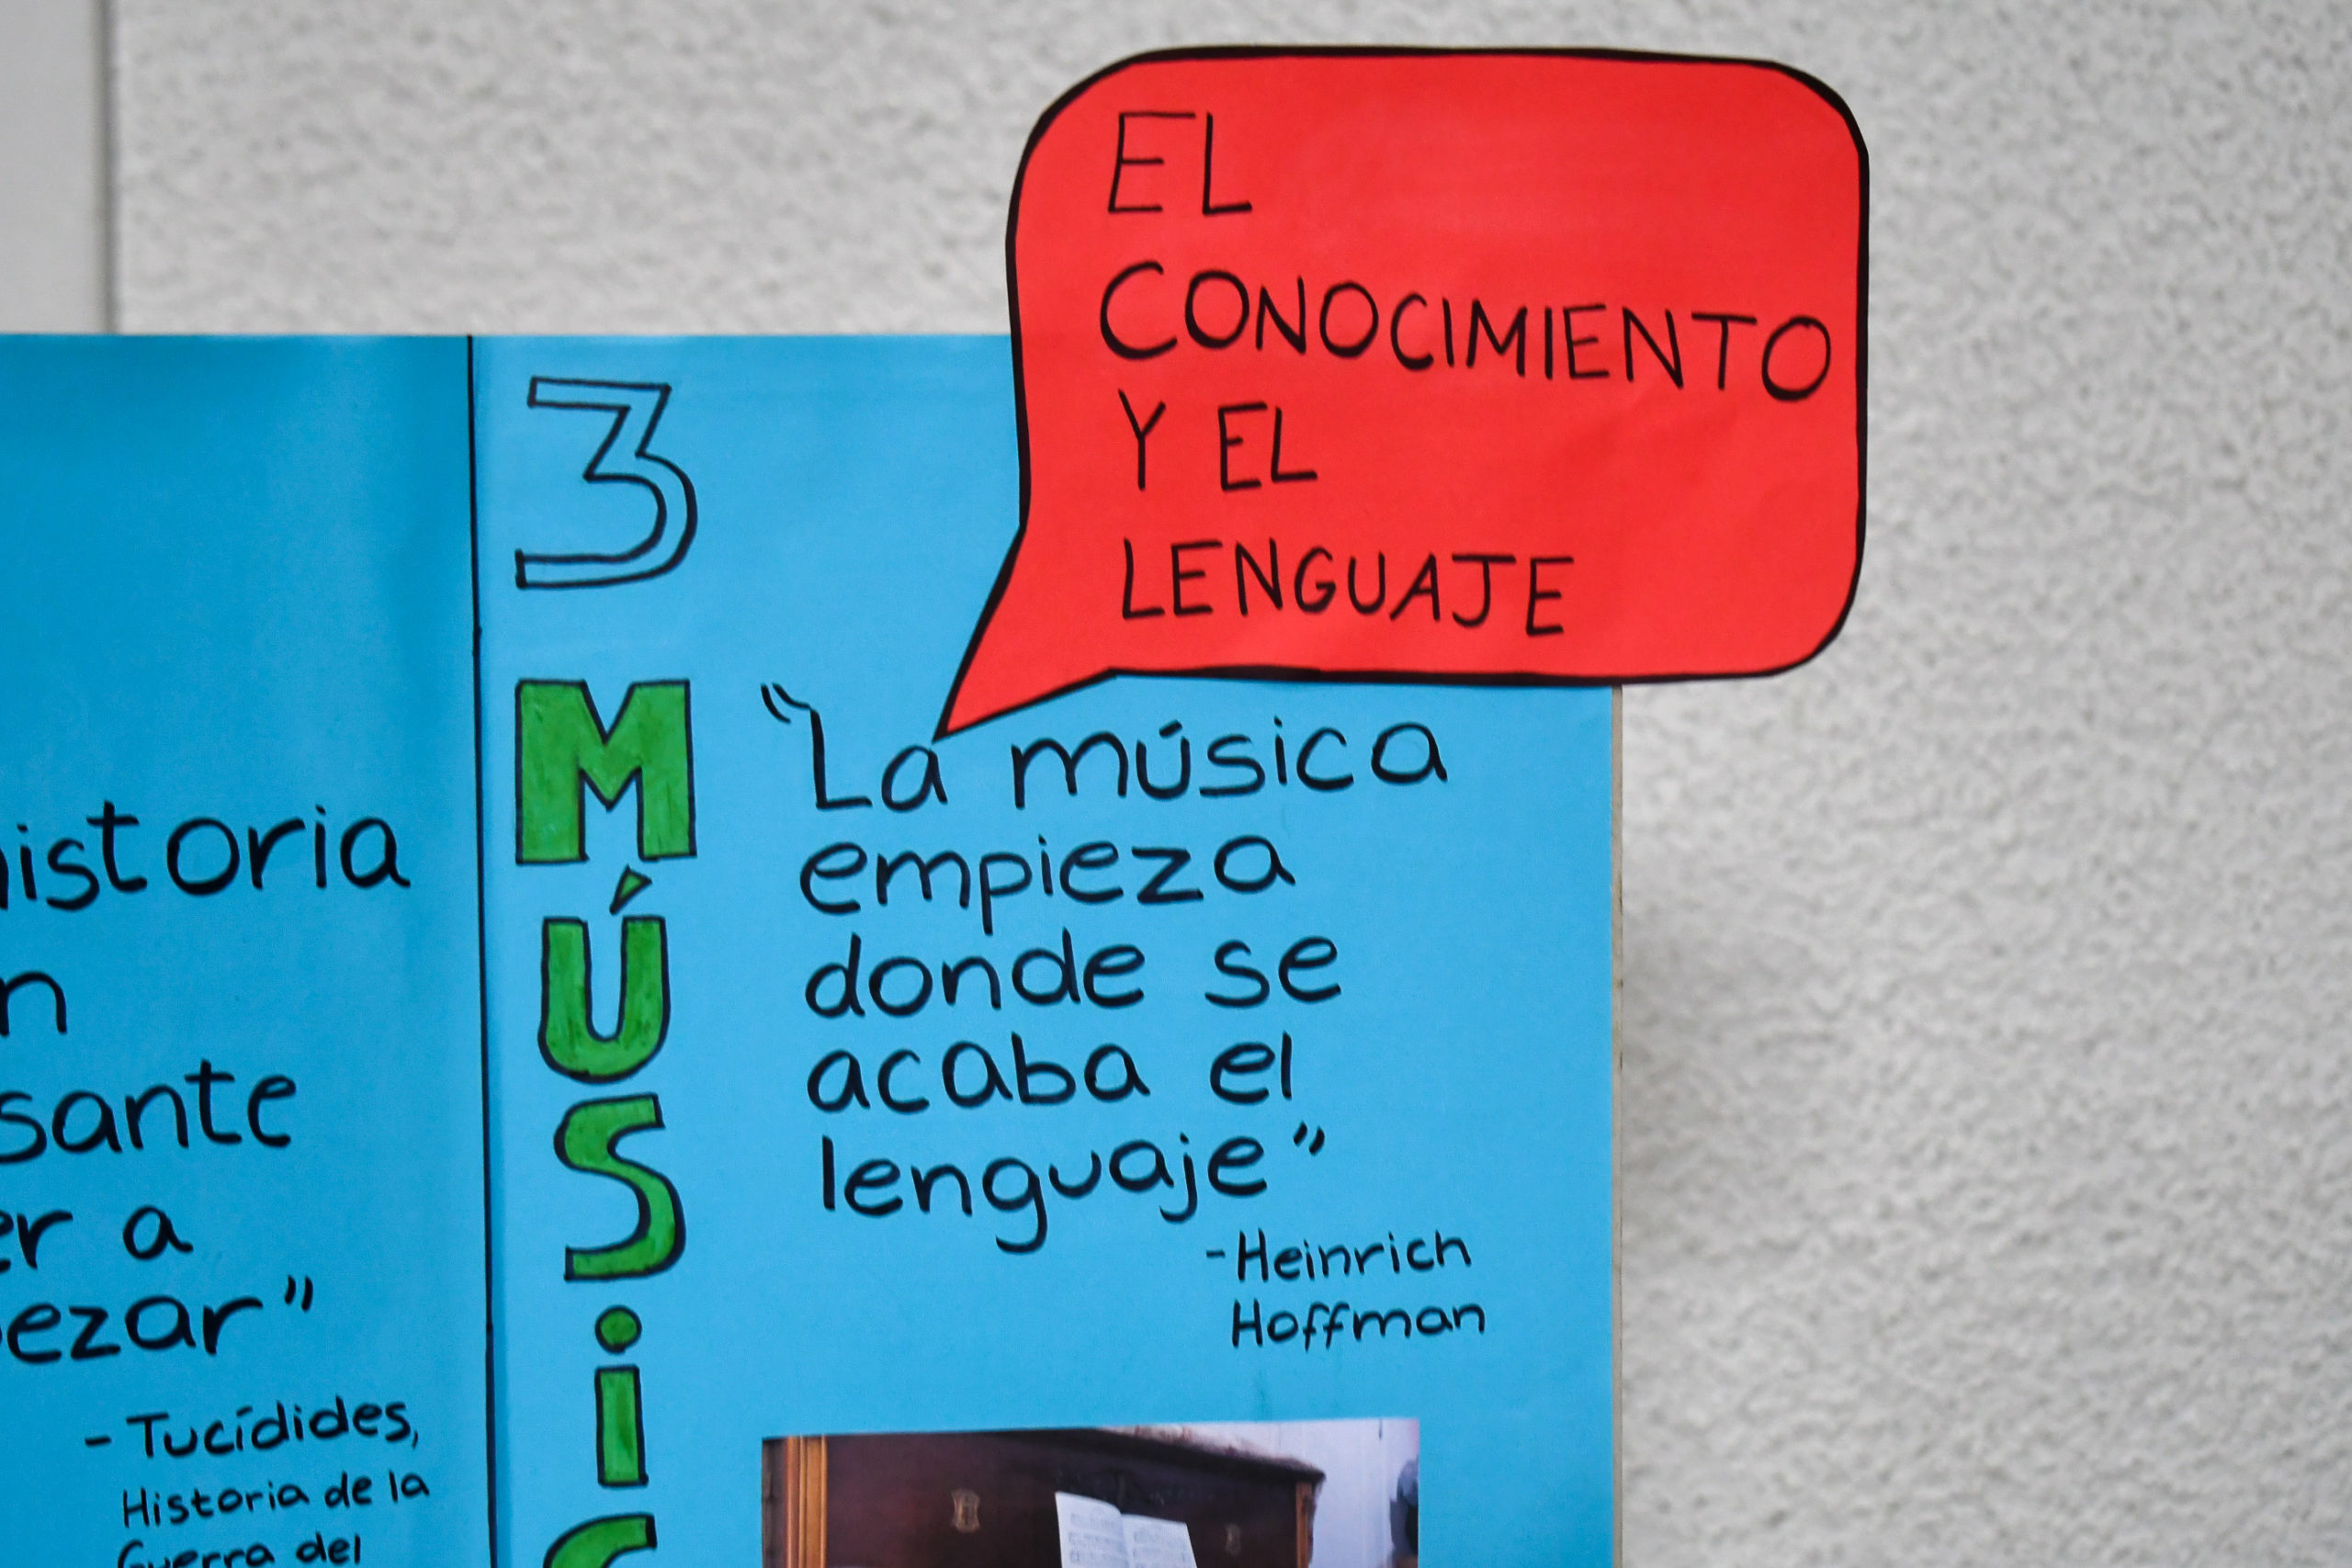 EL
CONOCIMIENTO
Y EL
LENGUAJE
istoria
n
sante
er a
ezar"
- Tucídides,
Historia de la
Guerra del
3
MÚSiC
"La música
empieza
donde se
acaba el
lenguaje"
- Heinrich
Hoffman